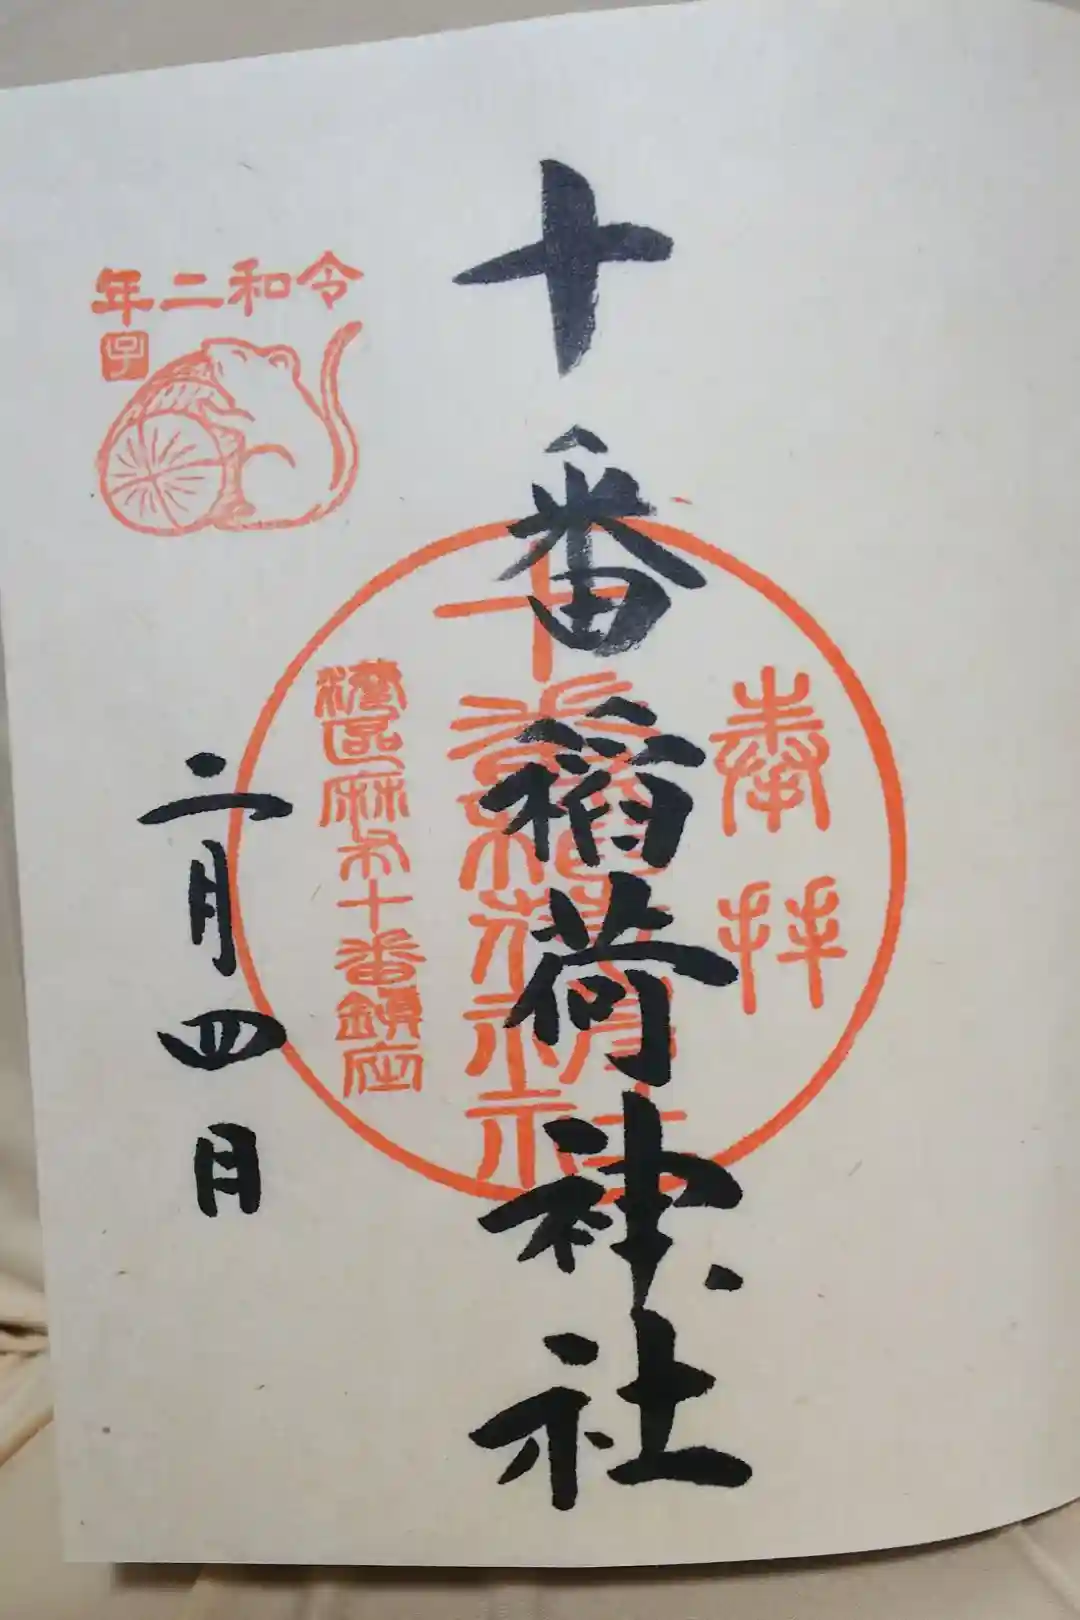 十番稲荷神社
奉拝
十番稲荷神社
港區麻布十番鎮座
令和二年
子
二月四日